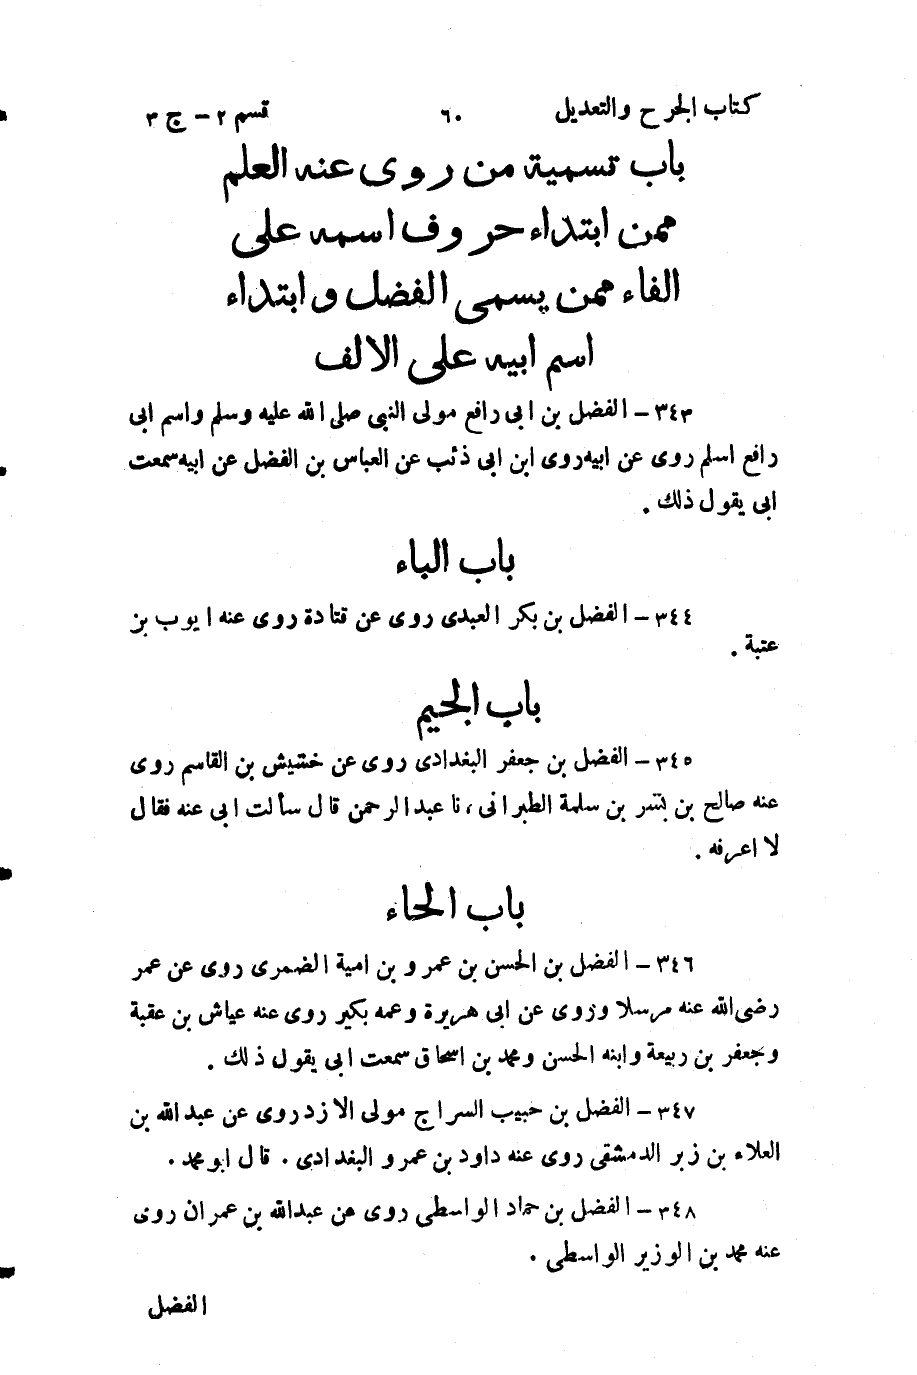 كتاب الجرح والتعديل ٦٠ قسم ٢ - ج ٣
باب تسمية من روى عنه العلم
ممن ابتداء حروف اسمه على
الفاء ممن يسمى الفضل وابتداء
اسم ابيه على الالف
٣٤٣ - الفضل بن ابى رافع مولى النبى صلى الله عليه وسلم واسم ابى
رافع اسلم روى عن ابيه روى ابن ابى ذئب عن العباس بن الفضل عن ابيه سمعت
ابى يقول ذلك .
باب الباء
٣٤٤ - الفضل بن بكر العبدى روى عن قتادة روى عنه ايوب بن
عتبة .
باب الجيم
٣٤٥ - الفضل بن جعفر البغدادى روى عن خشيش بن القاسم روى
عنه صالح بن بشر بن سلمة الطبرانى ، نا عبد الرحمن قال سألت ابى عنه فقال
لا اعرفه .
باب الحاء
٣٤٦ - الفضل بن الحسن بن عمرو بن امية الضمرى روى عن عمر
رضى الله عنه مرسلا وزوى عن ابى هريرة وعمه بكير روى عنه عياش بن عقبة
وجعفر بن ربيعة وابنه الحسن ومحمد بن اسحاق سمعت ابى يقول ذلك .
٣٤٧ - الفضل بن حبيب السراج مولى الازد روى عن عبد الله بن
العلاء بن زبر الدمشقى روى عنه داود بن عمرو البغدادى . قال ابو محمد .
٣٤٨ - الفضل بن حماد الواسطى روى عن عبدالله بن عمران روى
عنه محمد بن الوزير الواسطى .
الفضل